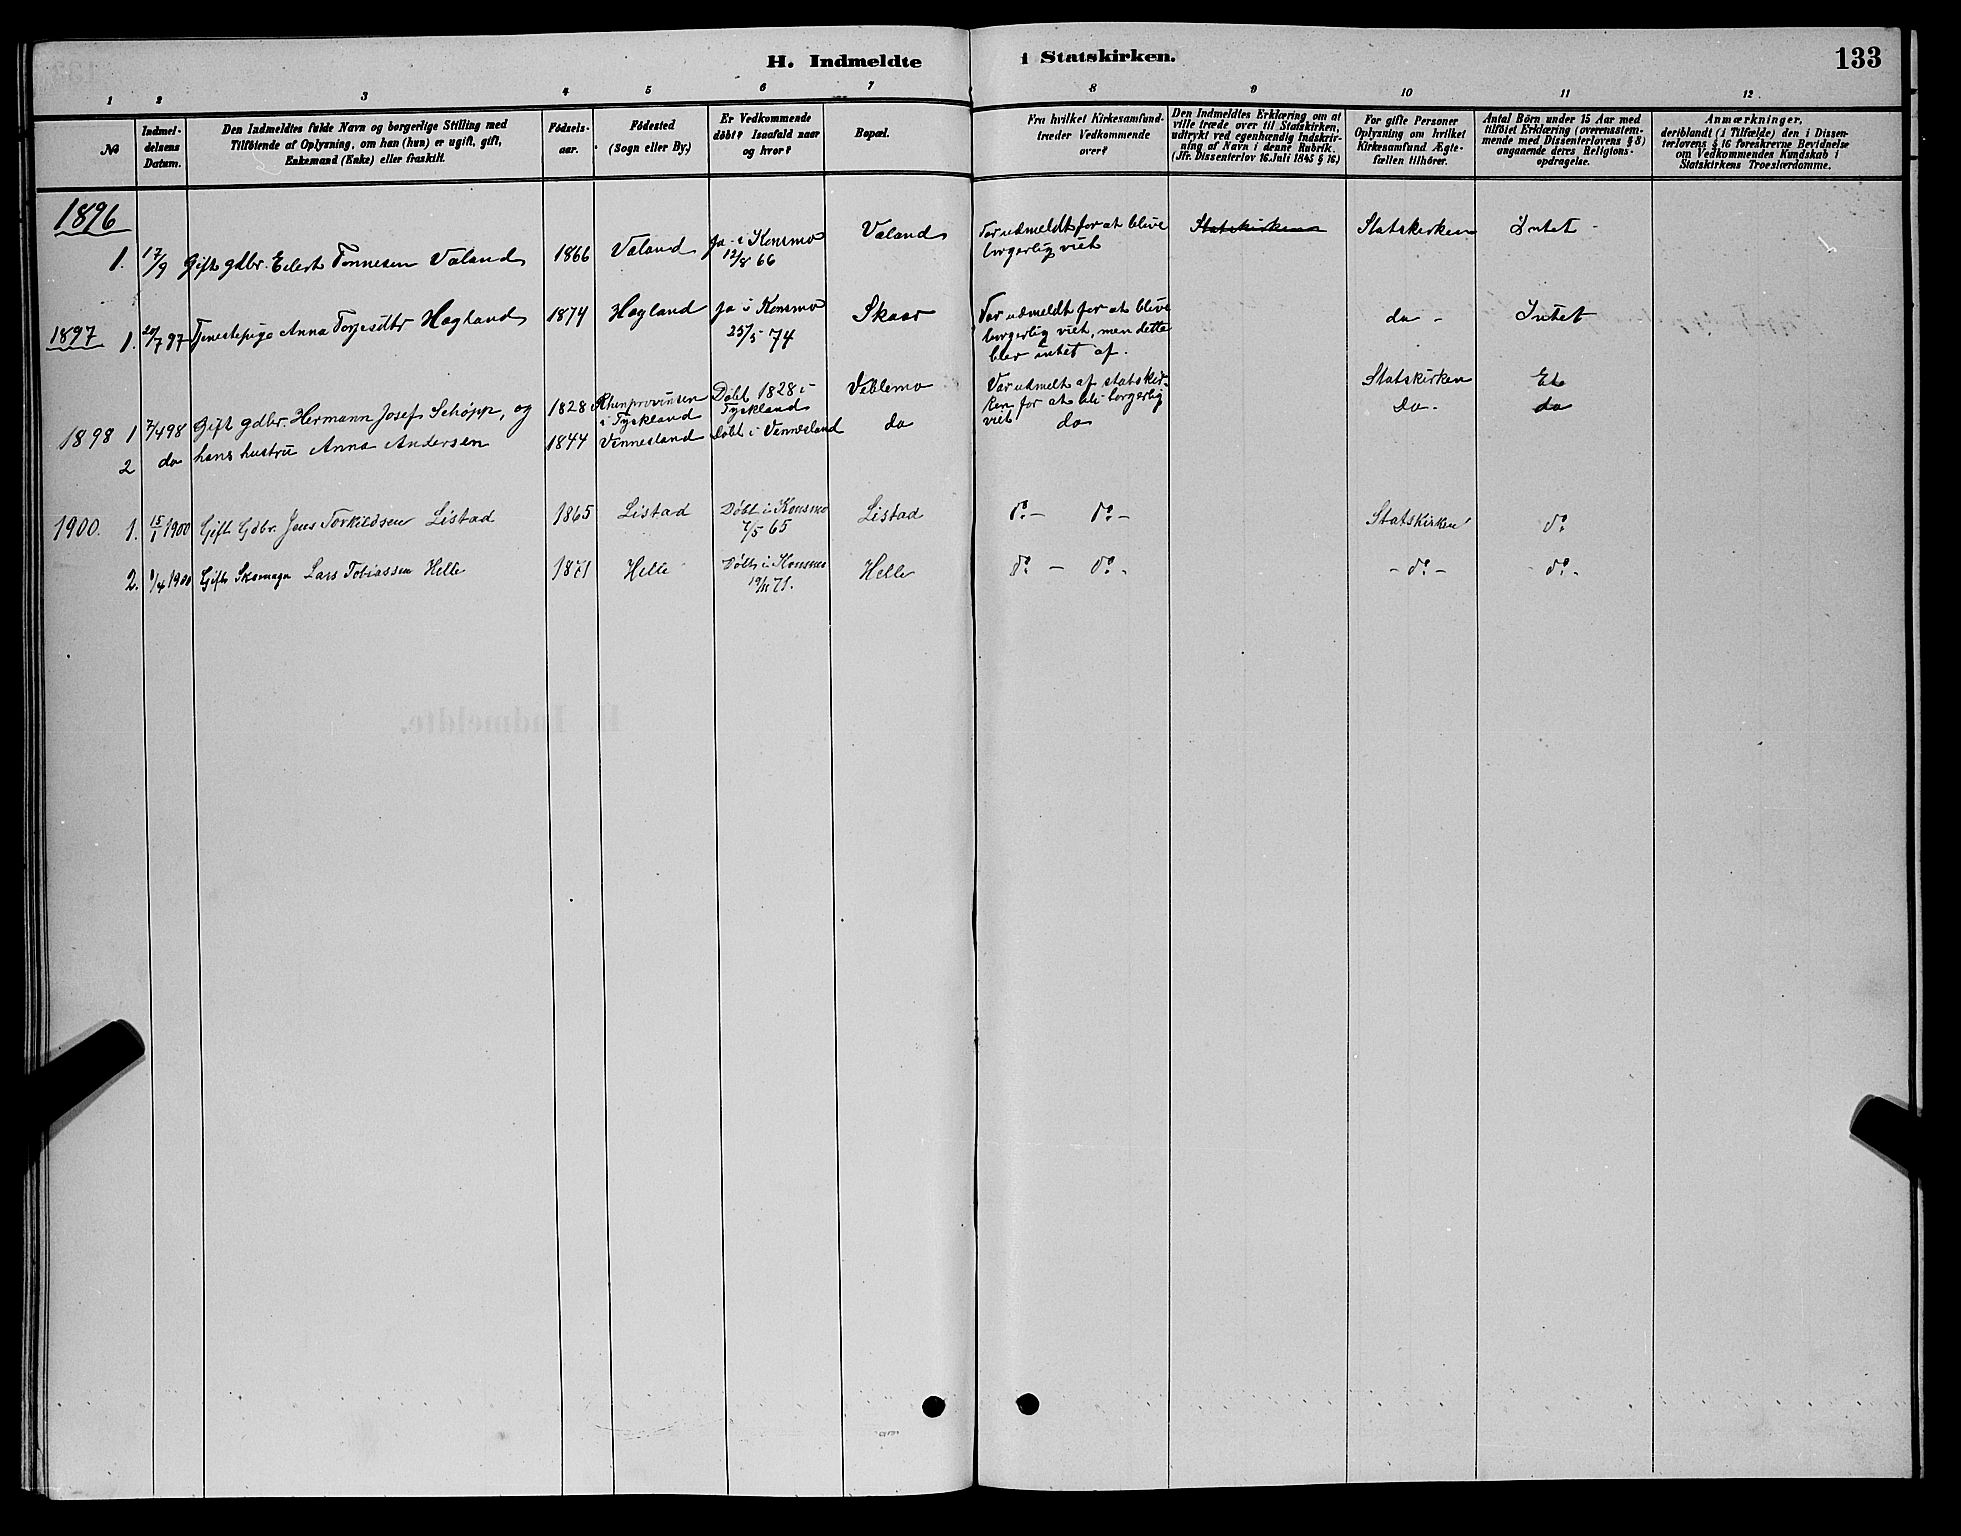 H. Indmeldte i Statskirken.
133
1 2 3 4 5 6 7 8 9 10 11 12.
№
Indmel-
delsens
Datum.
Den Indmeldtes fulde Navn og borgerlige Stilling med
Tilföiende af Oplysning, om han (hun) er ugift, gift,
Enkemand (Enke) eller fraskilt.
Födsels-
aar.
Födested
(Sogn eller By.)
Er Vedkommende
döbt? Isaafald naar
og hvor?
Bopæl.
Fra hvilket Kirkesamfund-
træder Vedkommende
over?
Den Indmeldtes Erklæring om at
ville træde over til Statskirken,
udtrykt ved egenhændig Indskriv-
ning af Navn i denne Rubrik.
(Jfr. Dissenterlov 16. Juli 1845 § 16)
For gifte Personer
Oplysning om hvilket
Kirkesamfund Ægte-
fællen tilhörer.
Antal Börn under 15 Aar med
tilföiet Erklæring (overensstem-
mende med Dissenterlovens § 8)
angaaende deres Religions-
opdragelse.
Anmærkninger,
deriblandt (i Tilfælde) den i Dissen-
terlovens § 16 foreskrevne Bevidnelse
om Vedkommendes Kundskab i
Statskirkens Troeslærdomme.
1896
1. 17/9 Gift gdbr. Eilert Tønnesen Valand 1866 Valand Ja i Konsmo
12/8 66
Valand
Var udmeldt for at blive
borgerlig viet
Statskirken
Statskirken
Intet
1897 1. 20/7 97 Tjenestepige Anna Torjesdtr Hagland 1874 Hagland Ja i Konsmo
25/5 74
Skaar
Var udmeldt for at blive
borgerlig viet, men dette
blev intet af.
do -
Intet
1898 1 7/4 98 Gift gdbr. Hermann Josef Schöpp, og 1828 Rhinprovinsen
i Tyskland
Döbt 1828 i
Tyskland
Veblemo
Var udmelt af statskir-
ken for at bli borgerlig
viet
Statskirken
Et
2 do hans hustru Anna Andersen 1844 Vennesland Döbt i Vennesland do do do. do
1900. 1. 15/1 1900 Gift Gdbr. Jens Torkildsen Listad 1865 Listad Döbt i Konsmo
7/5 65
Listad
do - do - Statskirken do
2. 1/4 1900 Gift Skomagr Lars Tobiassen Helle 1871 Helle Döbt i Konsmo
19/11 71.
Helle
do - do - - do - - do -
H. Indmeldte.